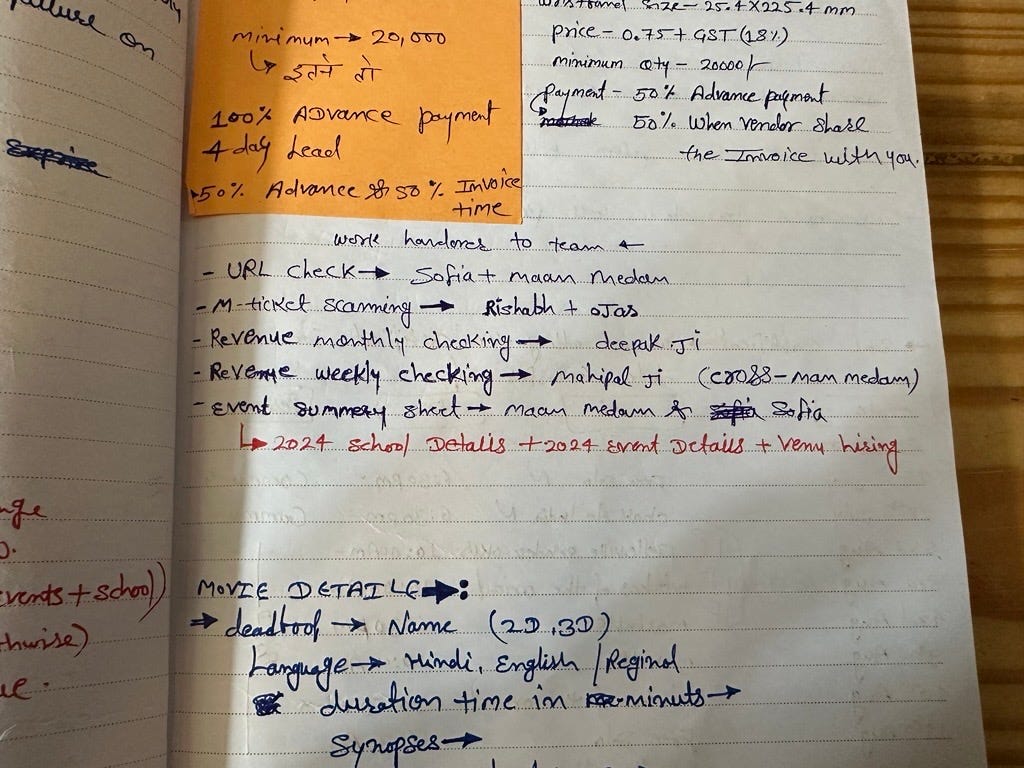 failure on
minimum → 20,000
↳ इतने तो
100% Advance payment
4 day Lead
→50% Advance & 50% Invoice
time
Size - 25.4 X 225.4 mm
price - 0.75 + GST (18%)
minimum Qty - 20000/-
payment - 50% Advance payment
50% When vendor share
the Invoice with you.
work handores to team ←
- URL check → Sofia + maan medam
- M-ticket scanning → Rishabh + OJas
- Revenue monthly checking → deepak Ji
- Revenue weekly checking → mahipal Ji (cross-man medam)
- Event summery sheet → maan medam & Sofia
↳ 2024 school Details + 2024 Event Details + Venu hising
vents + school)
thwise)
MOVIE DETAILE →:
⇒ deadbool → Name (2D, 3D)
Language → Hindi, English / Reginol
duration time in minuts →
Synopses →